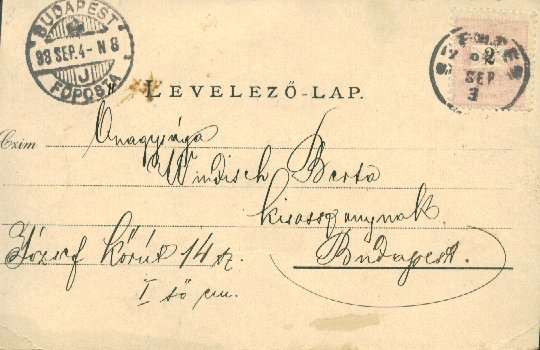 BUDAPEST
98 SEP. 4 - N 8
J
FŐPOSTA
SEP
3
LEVELEZŐ-LAP.
Czim Önagysága
Windisch Berta
kisasszonynak.
József körút 14 sz. Budapest.
I ső em.